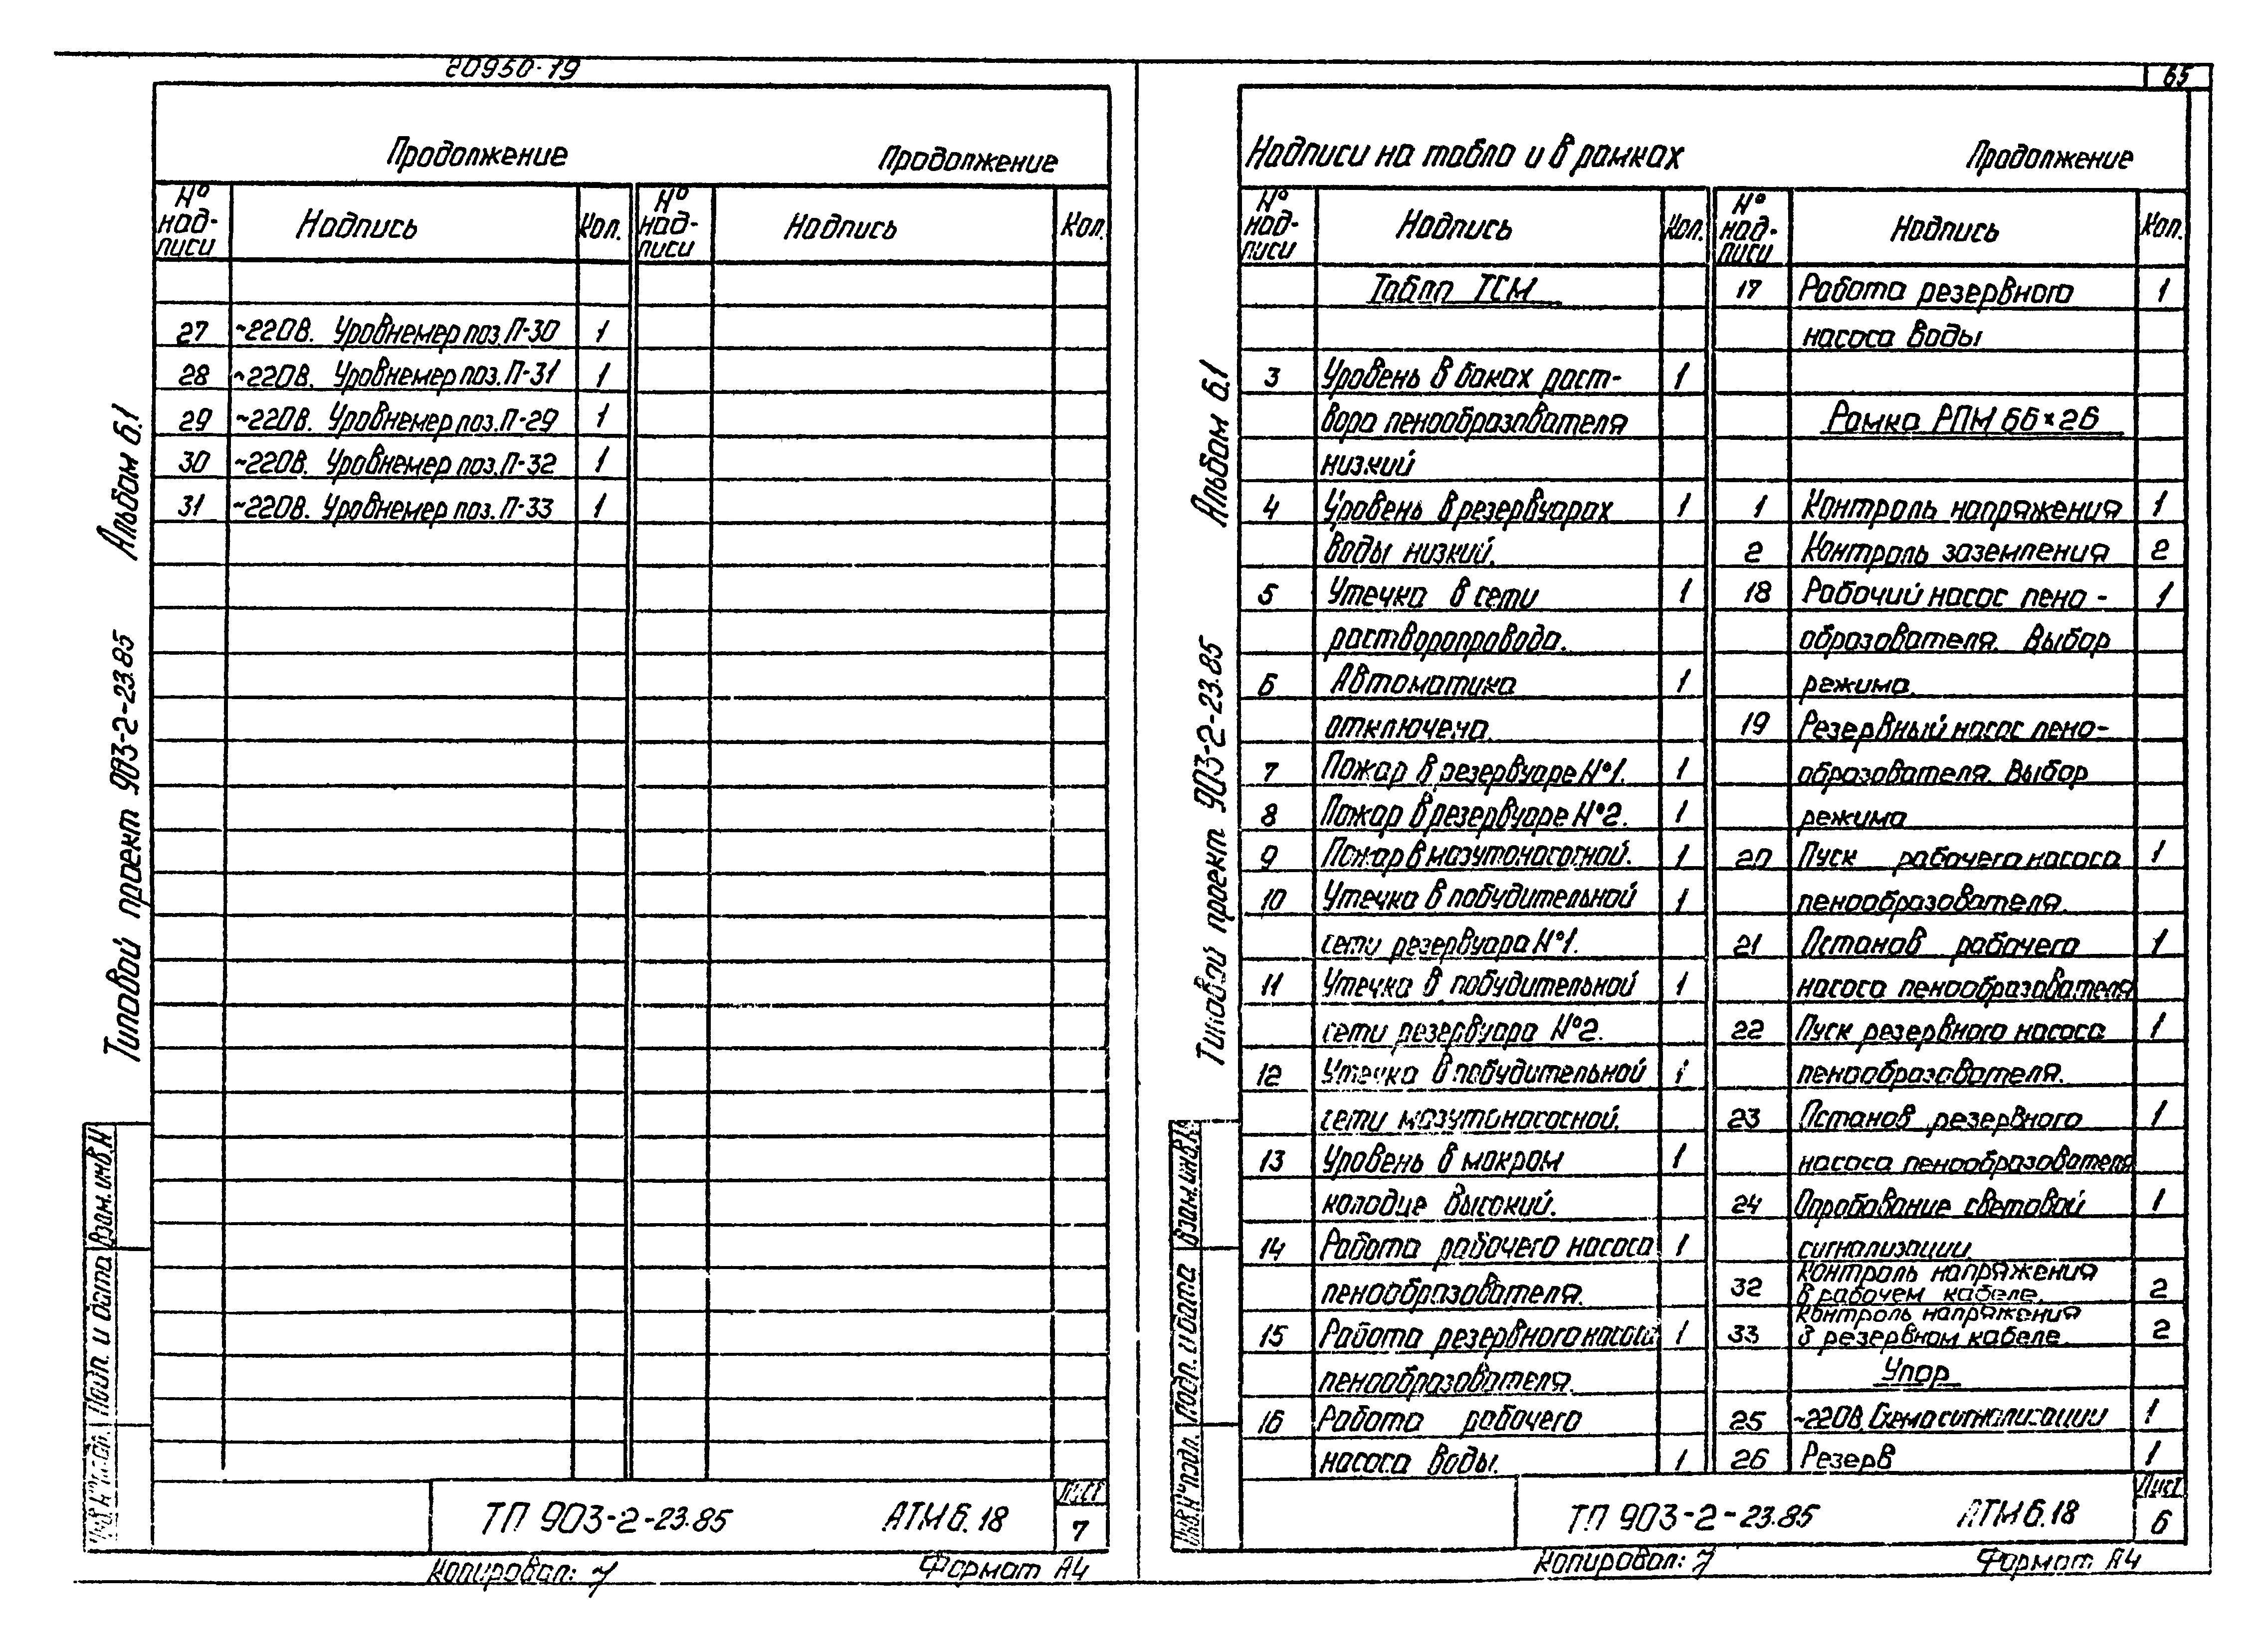 20950-19
65
Продолжение
Продолжение
№ над-писи
Надпись
Кол.
№ над-писи
Надпись
Кол.
27 ~220В. Уровнемер поз. П-30 1
28 ~220В. Уровнемер поз. П-31 1
29 ~220В. Уровнемер поз. П-29 1
30 ~220В. Уровнемер поз. П-32 1
31 ~220В. Уровнемер поз. П-33 1
Альбом 6.1
Типовой проект 903-2-23.85
Взам. инв. №
Подп. и дата
ТП 903-2-23.85 АТМ 6.18
Лист
7
Копировал:
Формат А4
Надписи на табло и в рамках
Продолжение
№ над-писи
Надпись
Кол.
№ над-писи
Надпись
Кол.
Табло ТСМ
3 Уровень в баках раст- 1
вора пенообразователя
низкий
4 Уровень в резервуарах 1
воды низкий.
5 Утечка в сети 1
растворопровода.
6 Автоматика 1
отключена.
7 Пожар в резервуаре №1. 1
8 Пожар в резервуаре №2. 1
9 Пожар в мазутонасосной. 1
10 Утечка в побудительной 1
сети резервуара №1.
11 Утечка в побудительной 1
сети резервуара №2.
12 Утечка в побудительной 1
сети мазутонасосной.
13 Уровень в мокром 1
колодце высокий.
14 Работа рабочего насоса 1
пенообразователя.
15 Работа резервного насоса 1
пенообразователя.
16 Работа рабочего
насоса воды. 1
17 Работа резервного 1
насоса воды
Рамка РПМ 66×26
1 Контроль напряжения 1
2 Контроль заземления 2
18 Рабочий насос пено- 1
образователя. Выбор
режима.
19 Резервный насос пено-
образователя. Выбор
режима
20 Пуск рабочего насоса 1
пенообразователя.
21 Останов рабочего 1
насоса пенообразователя
22 Пуск резервного насоса 1
пенообразователя.
23 Останов резервного 1
насоса пенообразователя
24 Опробование световой 1
сигнализации.
32 Контроль напряжения
в рабочем кабеле. 2
33 Контроль напряжения
в резервном кабеле. 2
Упор
25 ~220В. Схема сигнализации 1
26 Резерв 1
Альбом 6.1
Типовой проект 903-2-23.85
Взам. инв. №
Подп. и дата
Инв. № подл.
ТП 903-2-23.85 АТМ 6.18
Лист
6
Копировал:
Формат А4